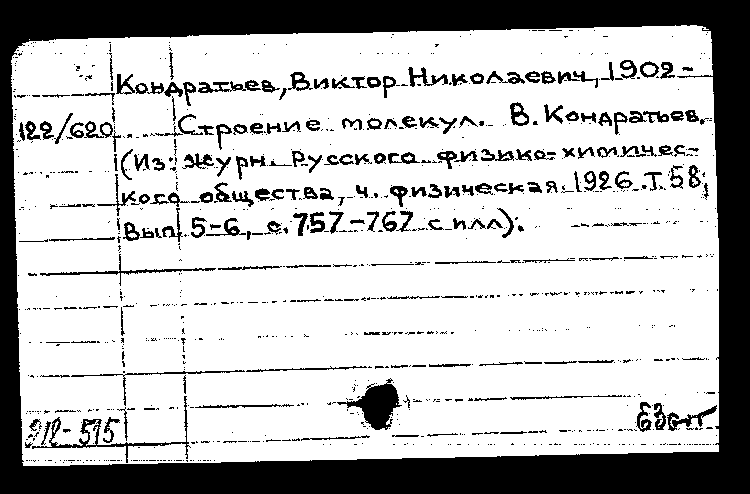 Кондратьев, Виктор Николаевич, 1902-
122/620 Строение молекул. В. Кондратьев.
(Из: журн. Русского физико-химичес-
кого общества, ч. физическая. 1926. Т. 58;
Вып 5-6, с. 757-767 с илл).
212-515